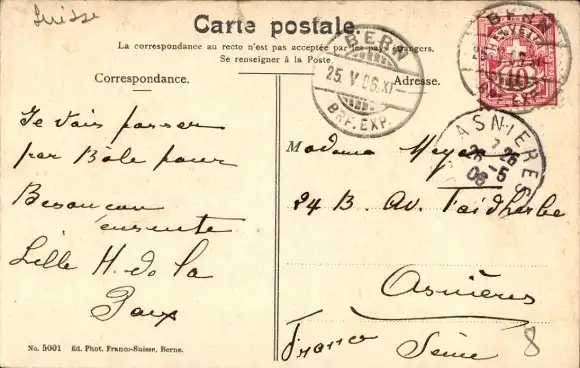 Suisse
Carte postale.
La correspondance au recto n'est pas acceptée par les pays étrangers.
Se renseigner à la Poste.
Correspondance.
Adresse.
BERN
25.V.06.XI
BRF. EXP.
BERN
10
ASNIERES
7 25
26-5
06
Je vais passer
par Bâle pour
Besancon
ensuite
Lille H. de la
Paix
Madame Meyer
24 B. Av. Faidherbe
Asnières
Seine
France
8
No. 5001 Ed. Phot. Franco-Suisse, Berne.